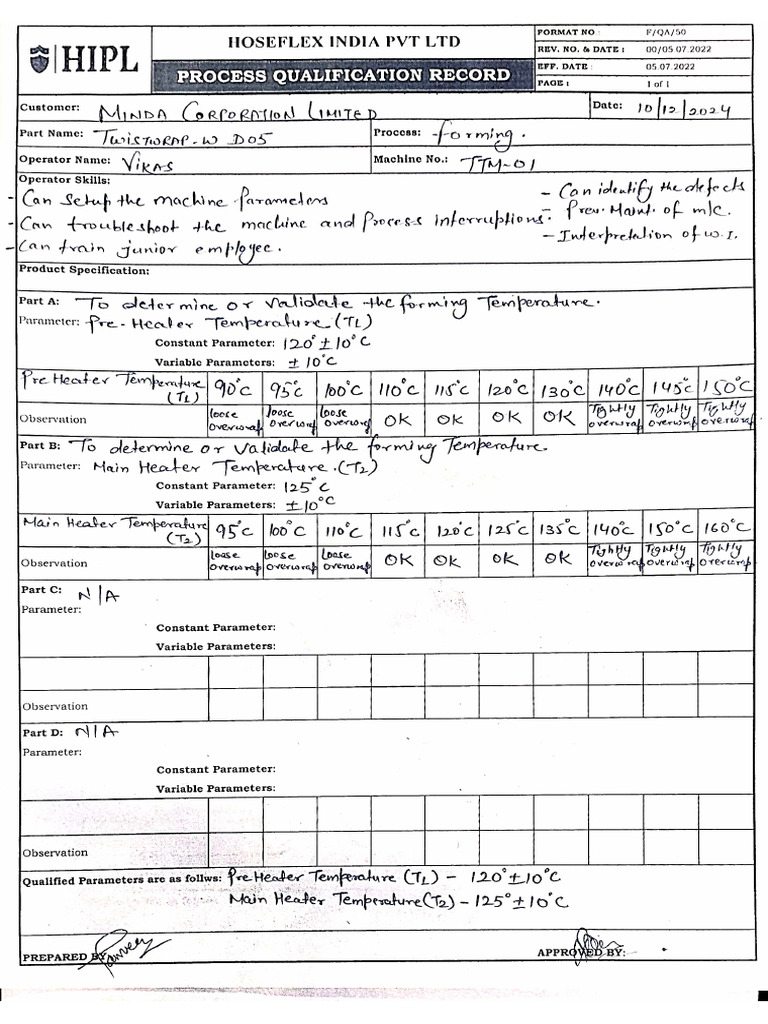 HIPL
HOSEFLEX INDIA PVT LTD
PROCESS QUALIFICATION RECORD
FORMAT NO : F/QA/50
REV. NO. & DATE : 00/05 07.2022
EFF. DATE : 05.07.2022
PAGE : 1 of 1
Customer: MINDA CORPORATION LIMITED Date: 10/12/2024
Part Name: TWISTWRAP-W D05 Process: forming.
Operator Name: VIKAS Machine No.: TTM-01
Operator Skills:
- Can setup the machine parameters
- Can troubleshoot the machine and process interruptions.
- Can train junior employee.
- Can identify the defects
- Prev. Maint. of m/c.
- Interpretation of W.I.
Product Specification:
Part A: To determine or validate the forming Temperature.
Parameter: Pre-Heater Temperature (T1)
Constant Parameter: 120° ± 10°C
Variable Parameters: ± 10°C
Pre Heater Temperature (T1) 90°C 95°C 100°C 110°C 115°C 120°C 130°C 140°C 145°C 150°C
Observation loose overwrap loose overwrap loose overwrap OK OK OK OK Tightly overwrap Tightly overwrap Tightly overwrap
Part B: To determine or validate the forming Temperature.
Parameter: Main Heater Temperature. (T2)
Constant Parameter: 125°C
Variable Parameters: ± 10°C
Main Heater Temperature (T2) 95°C 100°C 110°C 115°C 120°C 125°C 135°C 140°C 150°C 160°C
Observation loose overwrap loose overwrap loose overwrap OK OK OK OK Tightly overwrap Tightly overwrap Tightly overwrap
Part C: N/A
Parameter:
Constant Parameter:
Variable Parameters:
Observation
Part D: N/A
Parameter:
Constant Parameter:
Variable Parameters:
Observation
Qualified Parameters are as follws: Pre Heater Temperature (T1) - 120° ± 10°C
Main Heater Temperature (T2) - 125° ± 10°C
PREPARED BY: APPROVED BY: